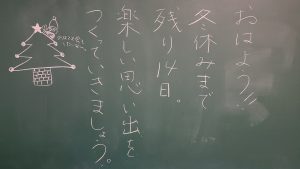 おはよう!!
冬休みまで
残り14日。
楽しい思い出を
つくっていきましょう。